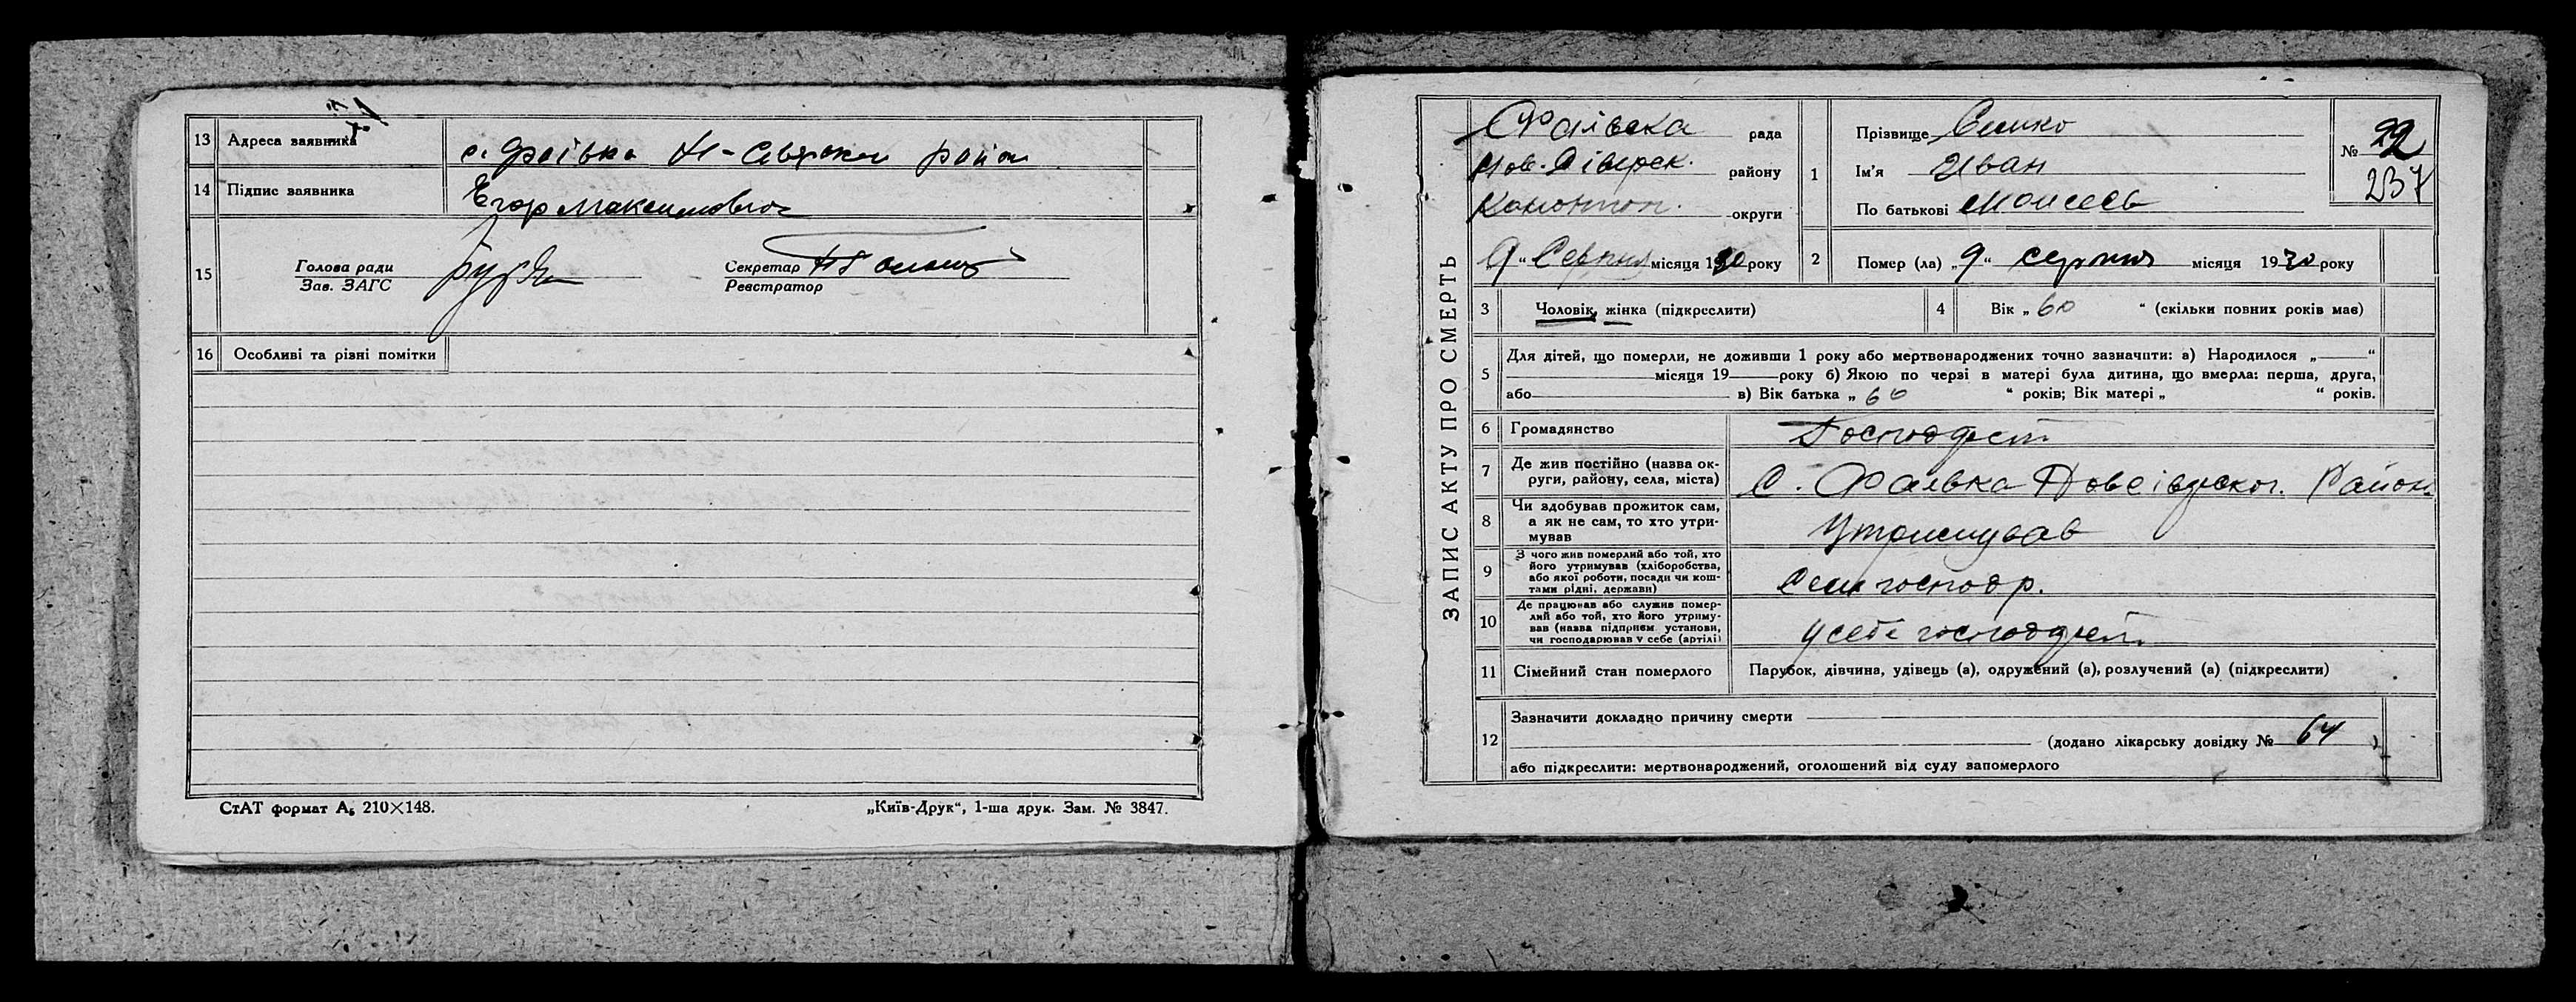 13 Адреса заявника с. Фаївка Н-Сіверском район
14 Підпис заявника Егор Максимович
15 Голова ради
Зав. ЗАГС
Секретар
Реєстратор
16 Особливі та різні помітки
СтАТ формат А₅ 210×148.
„Київ-Друк“, 1-ша друк. Зам. № 3847.
ЗАПИС АКТУ ПРО СМЕРТЬ
Фаївска рада
Нов. Сіверск. району
Конотоп. округи
„9“ Серпня місяця 1930 року
1 Прізвище
Ім'я Иван
По батькові Моисеев
№ 22
237
2 Помер (ла) „9“ серпня місяця 1930 року
3 Чоловік, жінка (підкреслити)
4 Вік „60“ (скільки повних років має)
5 Для дітей, що померли, не доживши 1 року або мертвонароджених точно зазначити: а) Народилося „ “
місяця 19 року б) Якою по черзі в матері була дитина, що вмерла: перша, друга,
або в) Вік батька „ 60 “ років; Вік матері „ “ років.
6 Громадянство
7 Де жив постійно (назва ок-
руги, району, села, міста) С. Фаївка Новсіверског. Район
8 Чи здобував прожиток сам,
а як не сам, то хто утри-
мував Утримував
9 З чого жив померлий або той, хто
його утримував (хліборобства,
або якої роботи, посади чи кош-
тами рідні, держави) Сель господр.
10 Де працював або служив помер-
лий або той, хто його утриму-
вав (назва підприєм. установи,
чи господарював у себе (артілі) у себе
11 Сімейний стан померлого Парубок, дівчина, удівець (а), одружений (а), розлучений (а) (підкреслити)
12 Зазначити докладно причину смерти
(додано лікарську довідку № 64 )
або підкреслити: мертвонароджений, оголошений від суду запомерлого